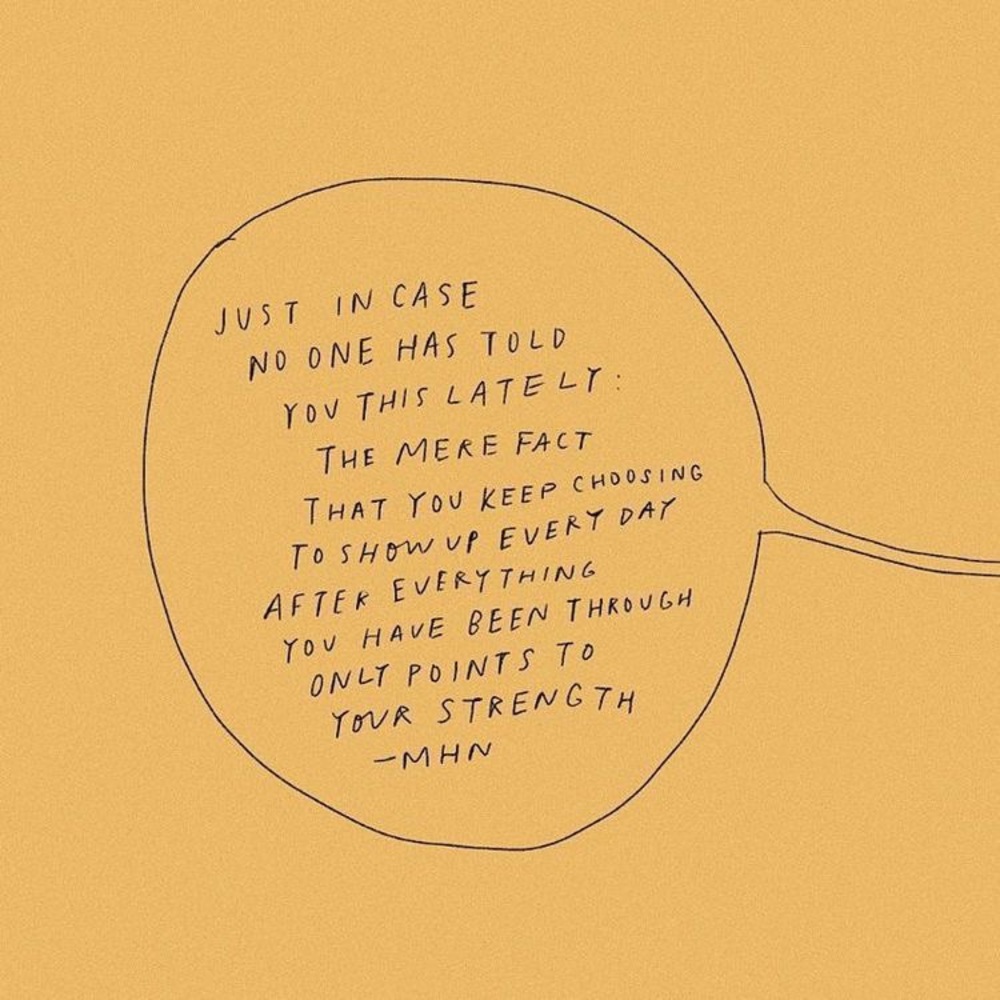 JUST IN CASE
NO ONE HAS TOLD
YOU THIS LATELY:
THE MERE FACT
THAT YOU KEEP CHOOSING
TO SHOW UP EVERY DAY
AFTER EVERYTHING
YOU HAVE BEEN THROUGH
ONLY POINTS TO
YOUR STRENGTH
-MHN